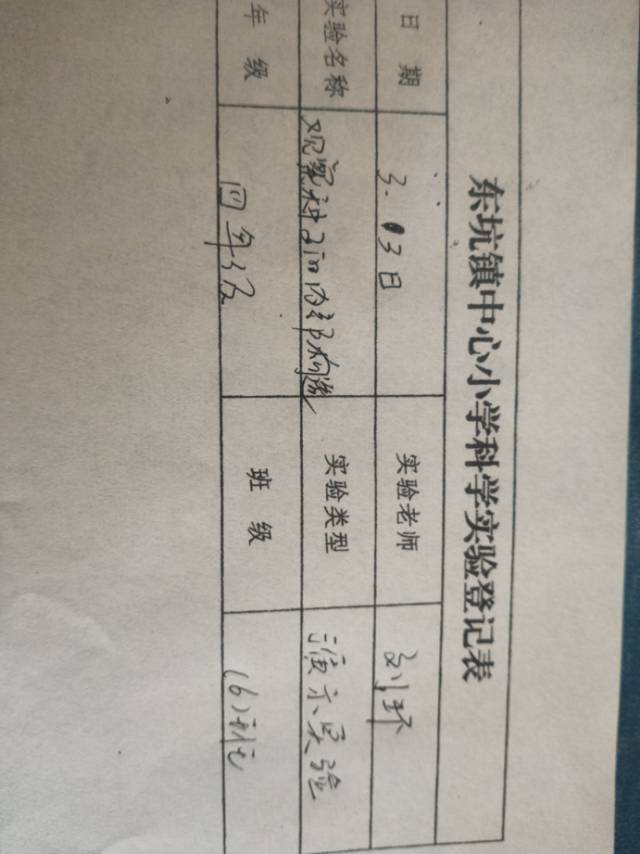 东坑镇中心小学科学实验登记表
日 期 3.13日 实验老师 刘环
实验名称 观察种子的内部构造 实验类型 演示实验
年 级 四年级 班 级 (6)班